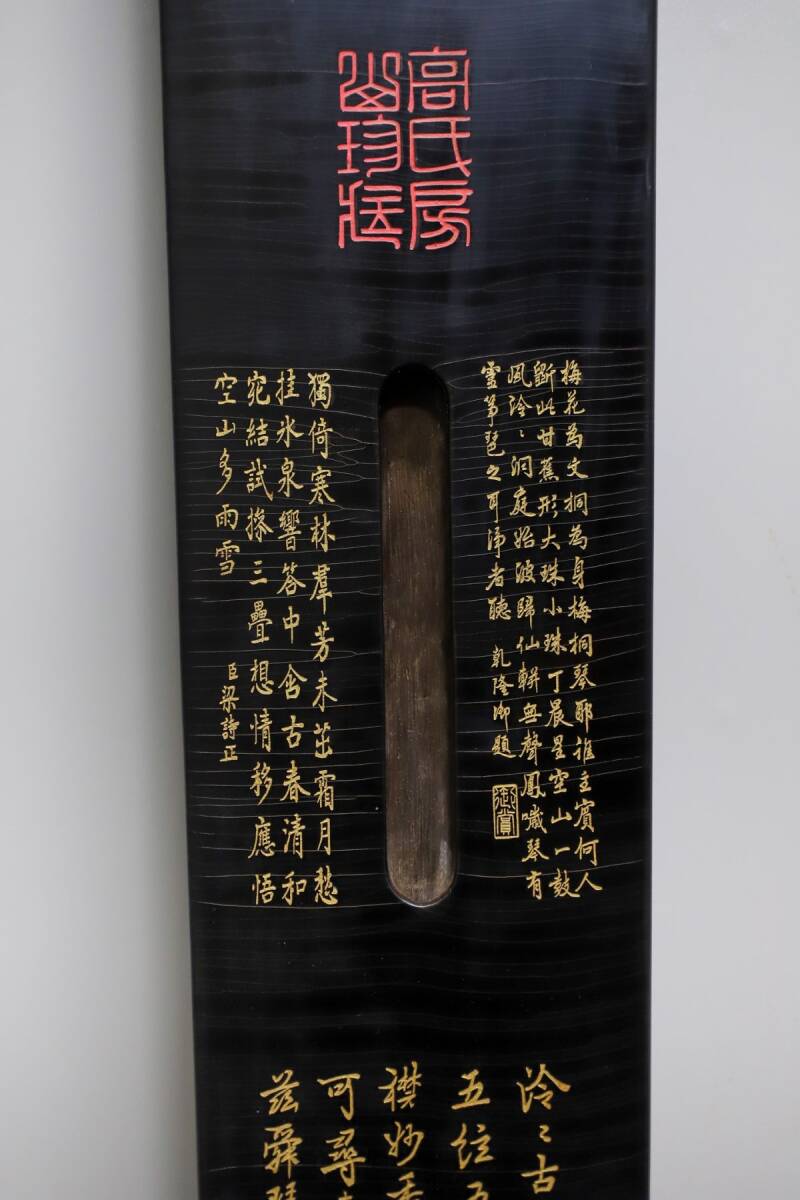 高氏房
山珍藏
梅花為文桐為身梅桐琴耶誰主賓何人
斵此甘蕉形大珠小珠丁晨星空山一鼓
風泠〻洞庭始波歸仙輧無聲鳳噦琴有
靈箏琶之耳淨者聽 乾隆御題
御賞
獨倚寒林羣芳未茁霜月愁
挂氷泉響答中含古春清和
宛結試摻三疊想情移應悟
空山多雨雪 臣梁詩正
泠〻古
五絃
襟妙
可尋
茲舜